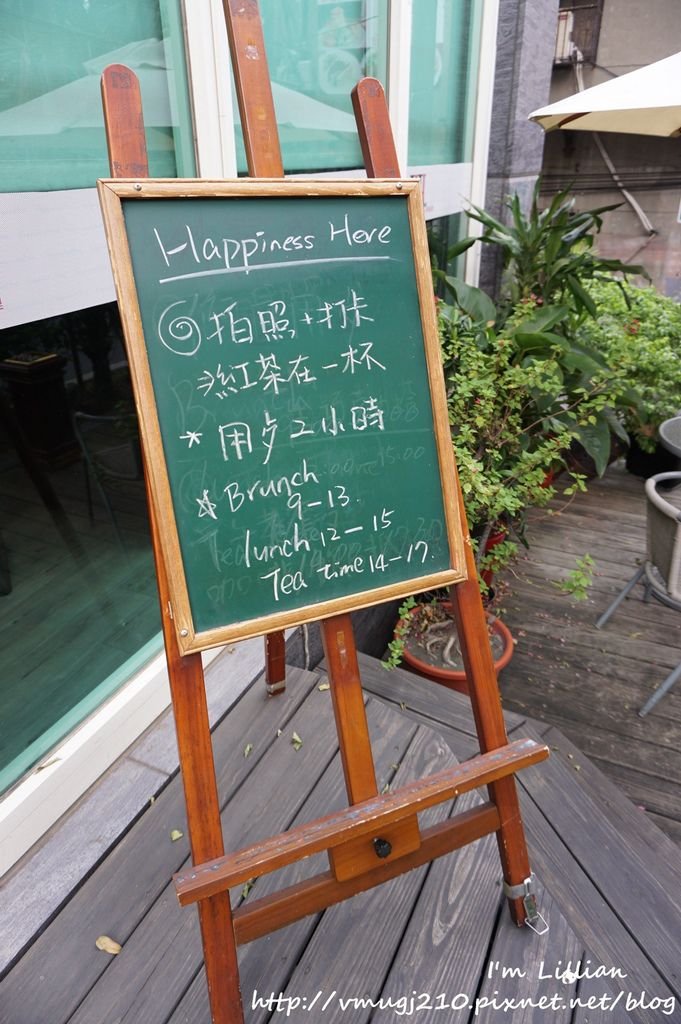 Happiness Here
拍照+打卡
⇒紅茶在一杯
* 用歺2小時
☆ Brunch
9-13.
lunch 12-15
Tea time 14-17.
I'm Lillian
http://vmugj210.pixnet.net/blog